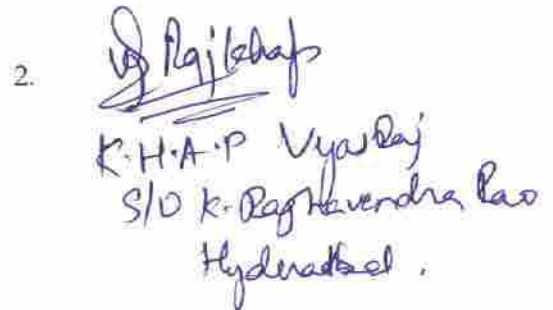 2.
K.H.A.P Vyas Raj
S/O K. Raghavendra Rao
Hyderabad.